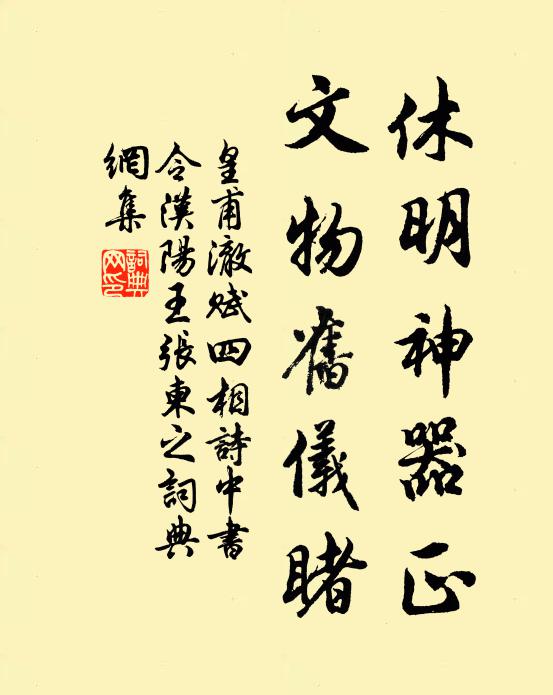 休明神器正
文物舊儀睹
皇甫澈賦四相詩中書
令漢陽王張東之詞典
網集
詞典
网印